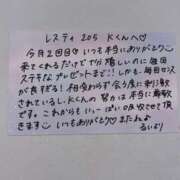 レスティ 205 Kくんへ♡
今月2回目♡いつも本当にありがとう
来てくれるだけで十分嬉しいのに毎回
ステキなプレゼントまで!!しかも、毎回センス
が良すぎる!相変わらず会う度に刺激
されているし、Kくんの努力は本当に尊敬
です。これからもいーっぱい吸収させて頂
きます いつもありがとう♡またねよ
るいより